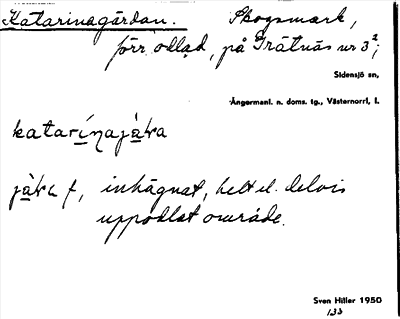 Katarinagårdan. Skogsmark,
förr odlad, på Grätnäs nr 3²;
Sidensjö sn,
Ångermanl. n. doms. tg., Västernorrl. l.
katarínajàṛa
jàṛa f, inhägnat, helt el. delvis
uppodlat område.
Sven Hiller 1950
133